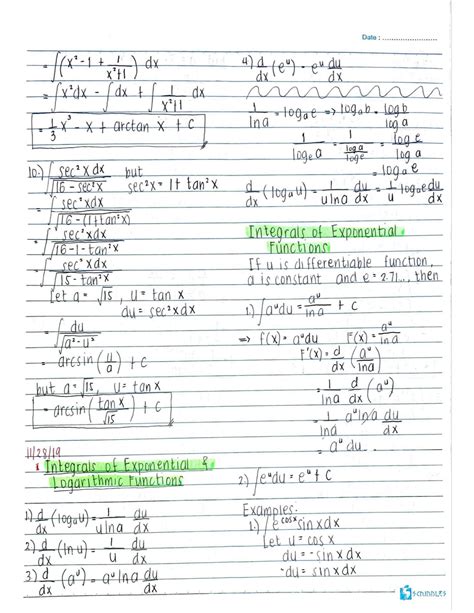 Date : ........................
= ∫(x² - 1 + 1/(x²+1)) dx
= ∫x²dx - ∫dx + ∫ 1/(x²+1) dx
= 1/3 x³ - x + arctan x + C
10.) ∫ sec²x dx / √(16 - sec²x) but sec²x = 1 + tan²x
= ∫ sec²x dx / √(16 - (1 + tan²x))
= ∫ sec²x dx / √(16 - 1 - tan²x)
= ∫ sec²x dx / √(15 - tan²x)
Let a = √15, u = tan x
du = sec²x dx
= ∫ du / √(a² - u²)
= arcsin (u/a) + C
but a = √15, u = tan x
= arcsin (tan x / √15) + C
11/28/19
* Integrals of Exponential &
Logarithmic Functions
1) d/dx (logₐu) = 1/(u ln a) du/dx
2) d/dx (ln u) = 1/u du/dx
3) d/dx (aᵘ) = aᵘ ln a du/dx
4) d/dx (eᵘ) = eᵘ du/dx
1/ln a = logₐe ⇒ logₐb = log b / log a
1/logₑa = 1/(log a / log e) = log e / log a
= logₐe
d/dx (logₐu) = 1/(u ln a) du/dx = 1/u logₐe du/dx
Integrals of Exponential
Functions
If u is differentiable function,
a is constant and e = 2.71..., then
1.) ∫aᵘdu = aᵘ/ln a + C
⇒ f(x) = aᵘdu F(x) = aᵘ/ln a
F'(x) = d/dx (aᵘ/ln a)
= 1/ln a d/dx (aᵘ)
= 1/ln a aᵘ ln a du/dx
= aᵘ du
2.) ∫eᵘdu = eᵘ + C
Examples:
1.) ∫e^(cos x) sin x dx
Let u = cos x
du = -sin x dx
-du = sin x dx
SCRIBBLES